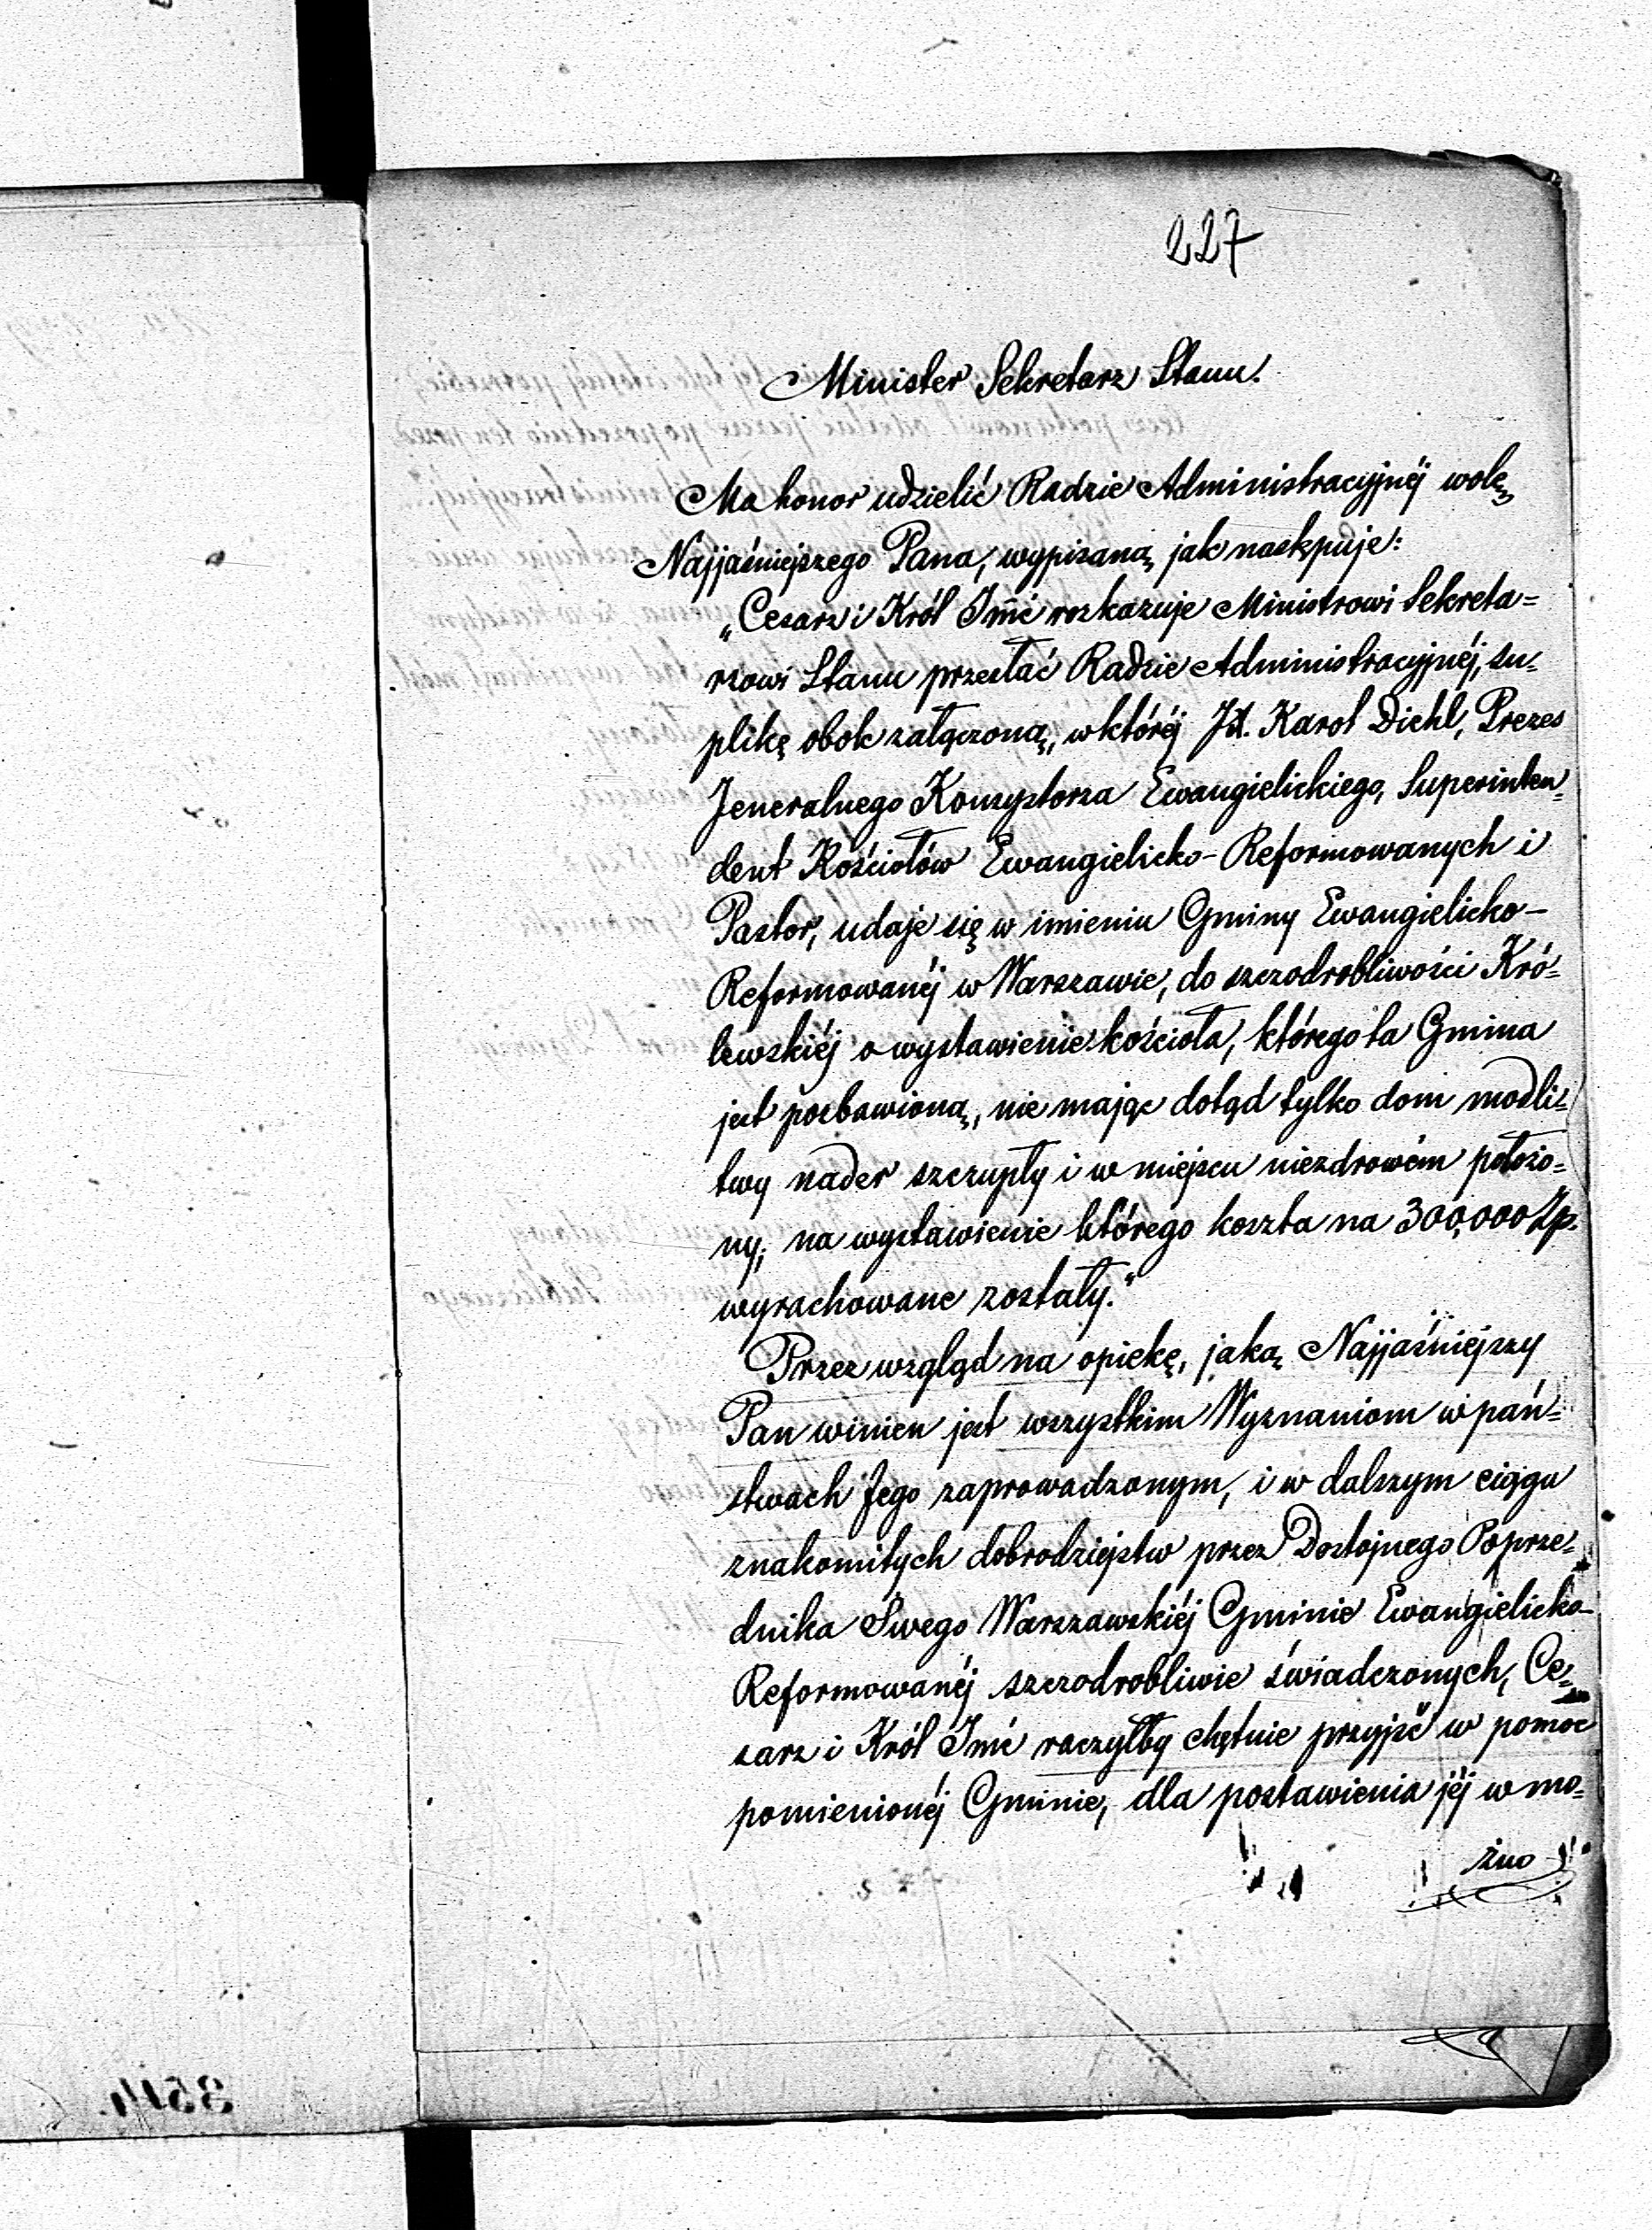 227
Minister Sekretarz Stanu.
Ma honor udzielić Radzie Administracyjnéj wolę
Najjaśniejszego Pana, wypisaną jak następuje:
„Cesarz i Król Jmć rozkazuje Ministrowi Sekreta=
rzowi Stanu przesłać Radzie Administracyjnéj, su=
plikę obok załączoną, w któréj JX. Karol Diehl, Prezes
Jeneralnego Konsystorza Ewangielickiego, Superinten=
dent Kościołów Ewangielicko-Reformowanych i
Pastor, udaje się w imieniu Gminy Ewangielicko-
Reformowanéj w Warszawie, do szczodrobliwości Kró=
lewskiéj o wystawienie kościoła, którego ta Gmina
jest pozbawioną, nie mając dotąd tylko dom modli=
twy nader szczupły i w miejscu niezdrowém położo=
ny; na wystawienie którego koszta na 300,000 Zp.
wyrachowane zostały."
Przez wzgląd na opiekę, jaką Najjaśniejszy
Pan winien jest wszystkim Wyznaniom w pań=
stwach Jego zaprowadzonym, i w dalszym ciągu
znakomitych dobrodziejstw przez Dostojnego Poprze=
dnika Swego Warszawskiéj Gminie Ewangielicko-
Reformowanéj szczodrobliwie świadczonych, Ce=
sarz i Król Jmć raczyłby chętnie przyjść w pomoc
pomienionéj Gminie, dla postawienia jéj w mo=
żno
3514.